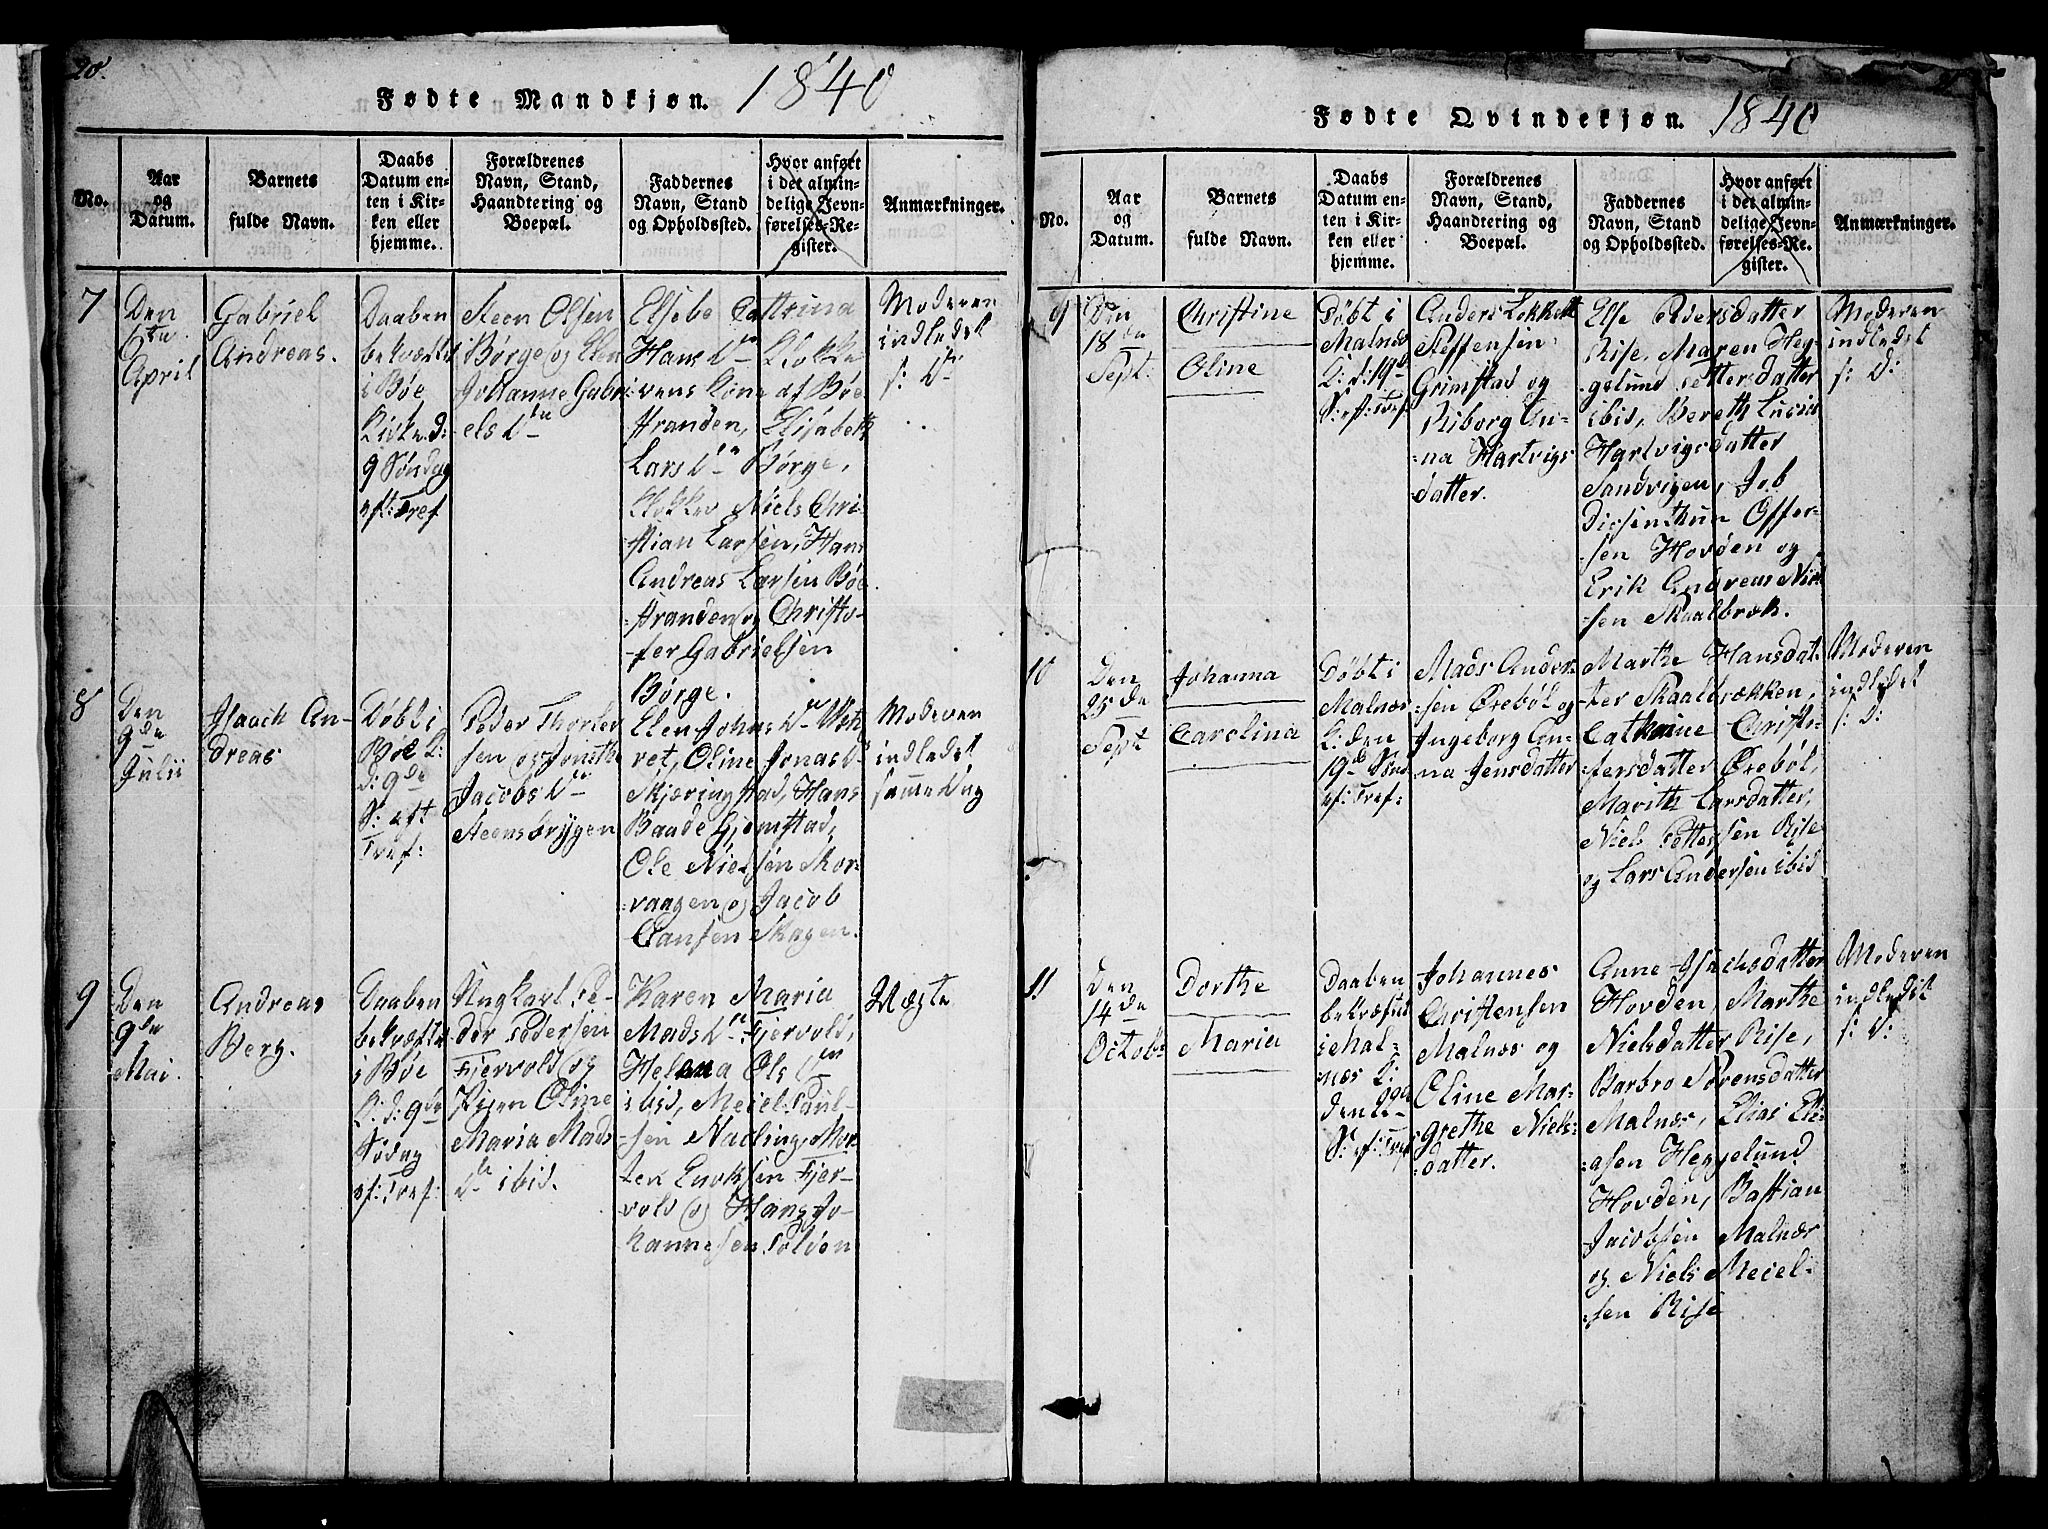 20.
Fødte Mandkjøn. 1840
No.
Aar
og
Datum.
Barnets
fulde Navn.
Daabs
Datum en-
ten i Kir-
ken eller
hjemme.
Forældrenes
Navn, Stand,
Haandtering og
Boepæl.
Faddernes
Navn, Stand
og Opholdssted.
Hvor anført
i det almin-
delige Jevn-
førelses-Re-
gister.
Anmærkninger.
7
Den
6te
April
Gabriel
Andreas.
Daaben
bekræftet
i Bøe
Kirke d:
9 Søndag
eft: Tref
Steen Olsen
Børge og Elen
Johanne Gabri-
els Dtr
Elsebe Cathrina
Hans Dtr Klokke
rens Kone af Bøe
stranden, Elisabeth
Lars Dtr Børge,
Klokker Niels Chri-
stian Larsen, Hans
Andreas Larsen Bøe
stranden og Christo-
fer Gabrielsen
Børge.
Moderen
indledet
s: D:
8
Den
9de
Julii
Isaach An-
dreas
Døbt i
Bøe K:
d: 9de
S: eft
Tref:
Peder Thorler
sen og Dorthe
Jacobs Dtr
Steensbrygen
Elen Johns Dtr
vet, Oline Jonas Dtr
Skjæringstad, Hans
Baade Gjemstad,
Ole Nielsen Skor-
vaagen og Jacob
Hansen Skagen.
Moderen
indledet
samme Dag
9
Den
9de
Mai
Andreas
Berg.
Daaben
bekræftet
i Bøe
K: d: 9de
Sødag
ef: Tref:
Ungkarl Pe-
der Pedersen
Fjervold og
Pigen Oline
Maria Mads
Dtr ibid.
Karen Maria
Mads Dtr Fjervold,
Helena Ols Dtr
ibid, Meiel Paul-
sen Nadling, Mor
ten Eriksen Fjer-
vold og Hans Jo-
hannesen Tolden
Uægte
Fødte Qvindekjøn. 1840
No.
Aar
og
Datum.
Barnets
fulde Navn.
Daabs
Datum en-
ten i Kir-
ken eller
hjemme.
Forældrenes
Navn, Stand,
Haandtering og
Boepæl.
Faddernes
Navn, Stand
og Opholdssted.
Hvor anført
i det almin-
delige Jevn-
førelses-Re-
gister.
Anmærkninger.
9
Den
18de
Sept:
Christine
Oline
Døbt i
Malnæs
K: d: 19de
S: ef: Tref
Anders Lokkett
Steffensen
Grimstad og
Riborg An-
na Hartvigs
datter.
Else Pedersdatter
Rise, Maren Heg-
gelund Pettersdatter
ibid, Bereth Lucia
Hartvigsdatter
Sandvigen, Job
Offer-
sen Hovden og
Erik Andreas Niel
sen Skaalbræk.
Moderen
indledet
s: D:
10
Den
25de
Sept
Johanna
Carolina
Døbt i
Malnæs
K: den
19de Søn
ef: Tref:
Mads Ander-
sen Ørebøl og
Ingeborg An-
na Jensdatter
Marthe Hansdat-
ter Skaalbrækken,
Cathrine Christo-
fersdatter Ørebøl,
Marith Larsdatter,
Niels Pettersen Rise
og Lars Andersen ibid
Moderen
indledet
s: D:
11
Den
14de
Octob:
Dorthe
Maria
Daaben
bekræftet
i Mal-
næs K:
den 22de
S: ef: Tref
Johannes
Christensen
Malnæs og
Oline Mar-
grethe Niels-
datter.
Anne Isachsdatter
Hovden, Marthe
Nielsdatter Rise,
Barbro Sørensdatter
Malnæs, Elias Eli-
asen Heggelund
Hovden, Bastian
Jacobsen Malnæs
og Niels Meiel-
sen Rise
Moderen
indledet
s: D: